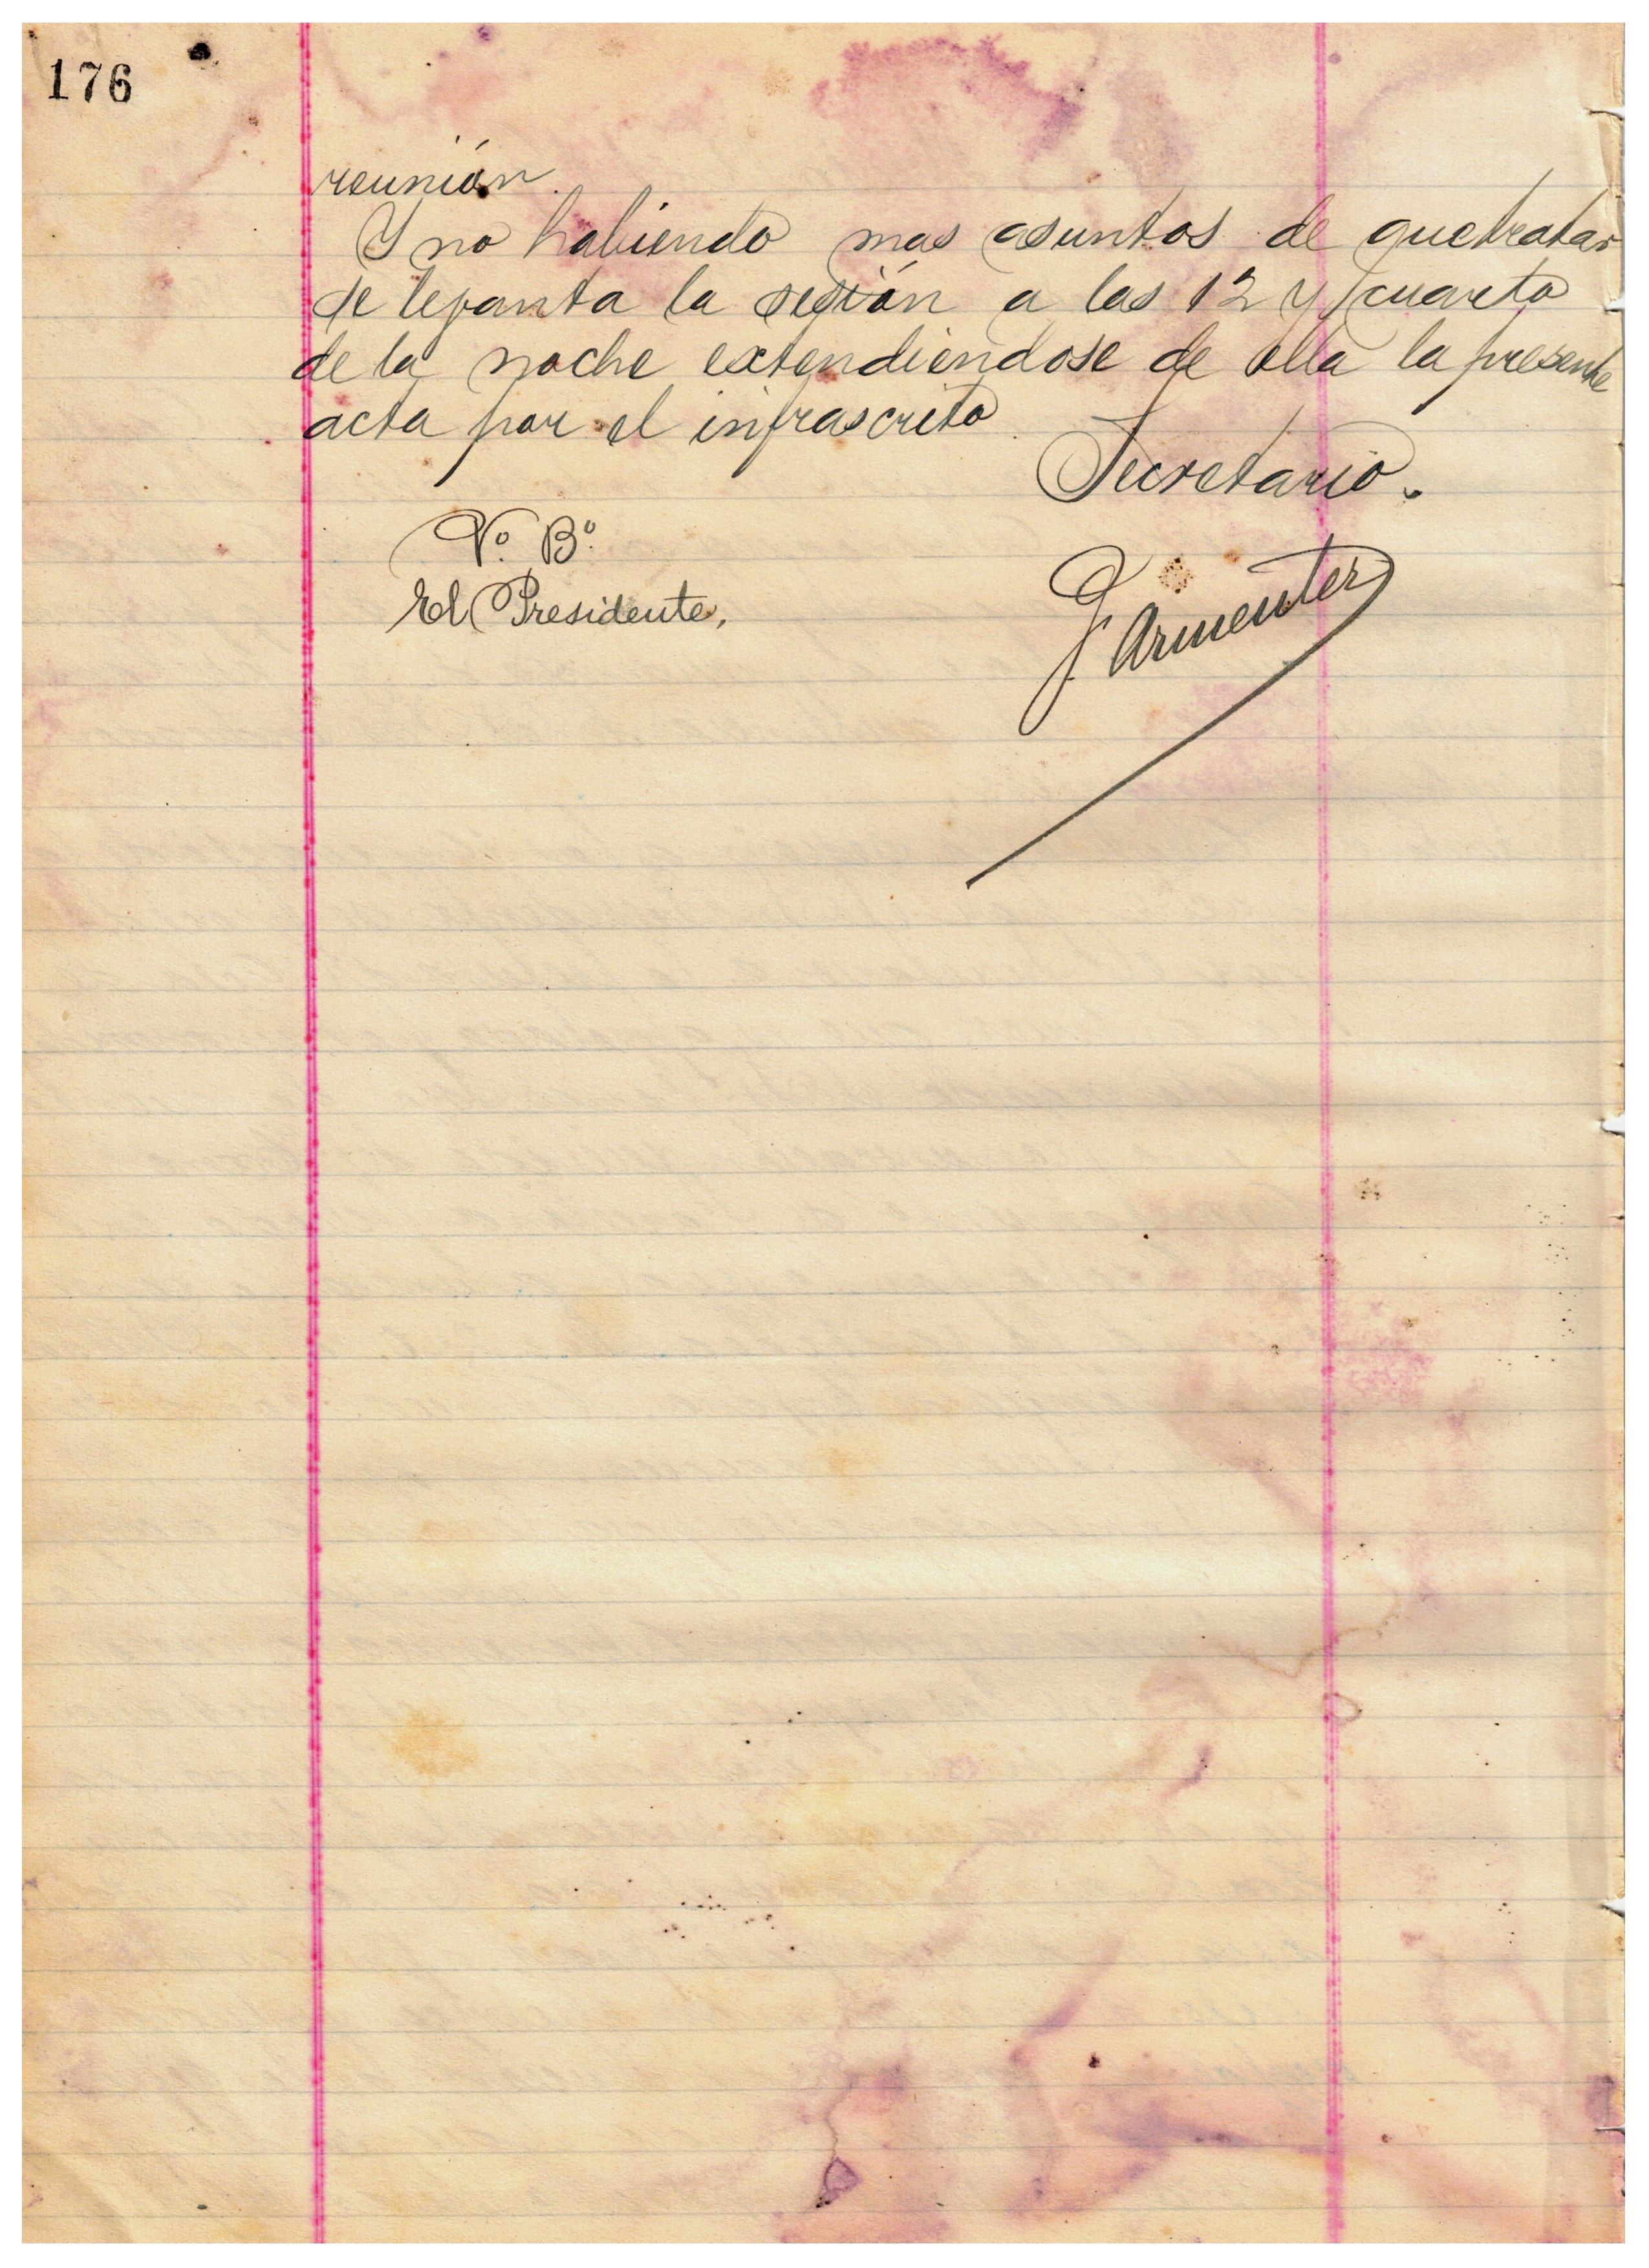 176
reunión.
Y no habiendo mas asuntos de que tratar
se levanta la sesión a las 12 y cuarto
de la noche extendiendose de ella la presente
acta por el infrascrito
Secretario.
Vº. Bº.
El Presidente,
J. Armenter